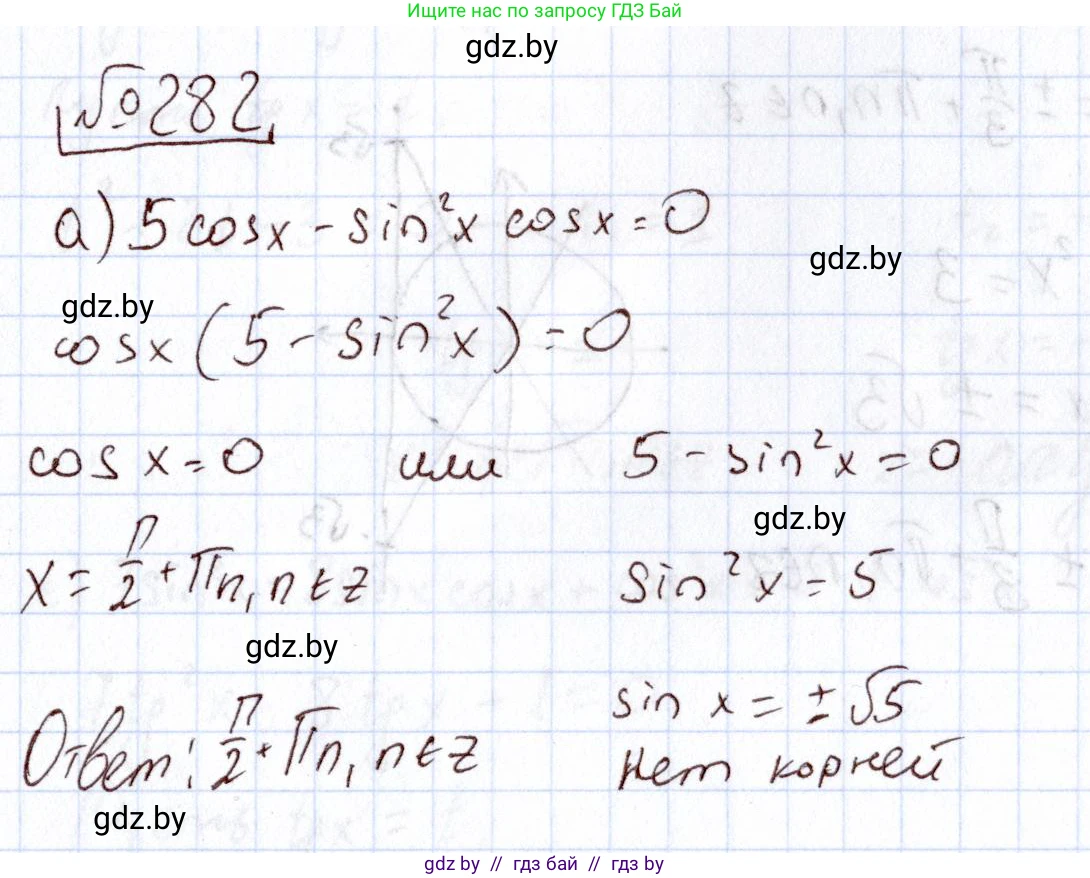 Ищите нас по запросу ГДЗ Бай
gdz.by
№282
а) 5 cosx - sin²x cosx = 0
gdz.by
gdz.by
cosx (5 - sin²x) = 0
cos x = 0 или 5 - sin²x = 0
gdz.by
x = π/2 + πn, n ∈ z sin²x = 5
gdz.by
sin x = ± √5
Ответ: π/2 + πn, n ∈ z Нет корней
gdz.by
gdz by // гдз бай // гдз by